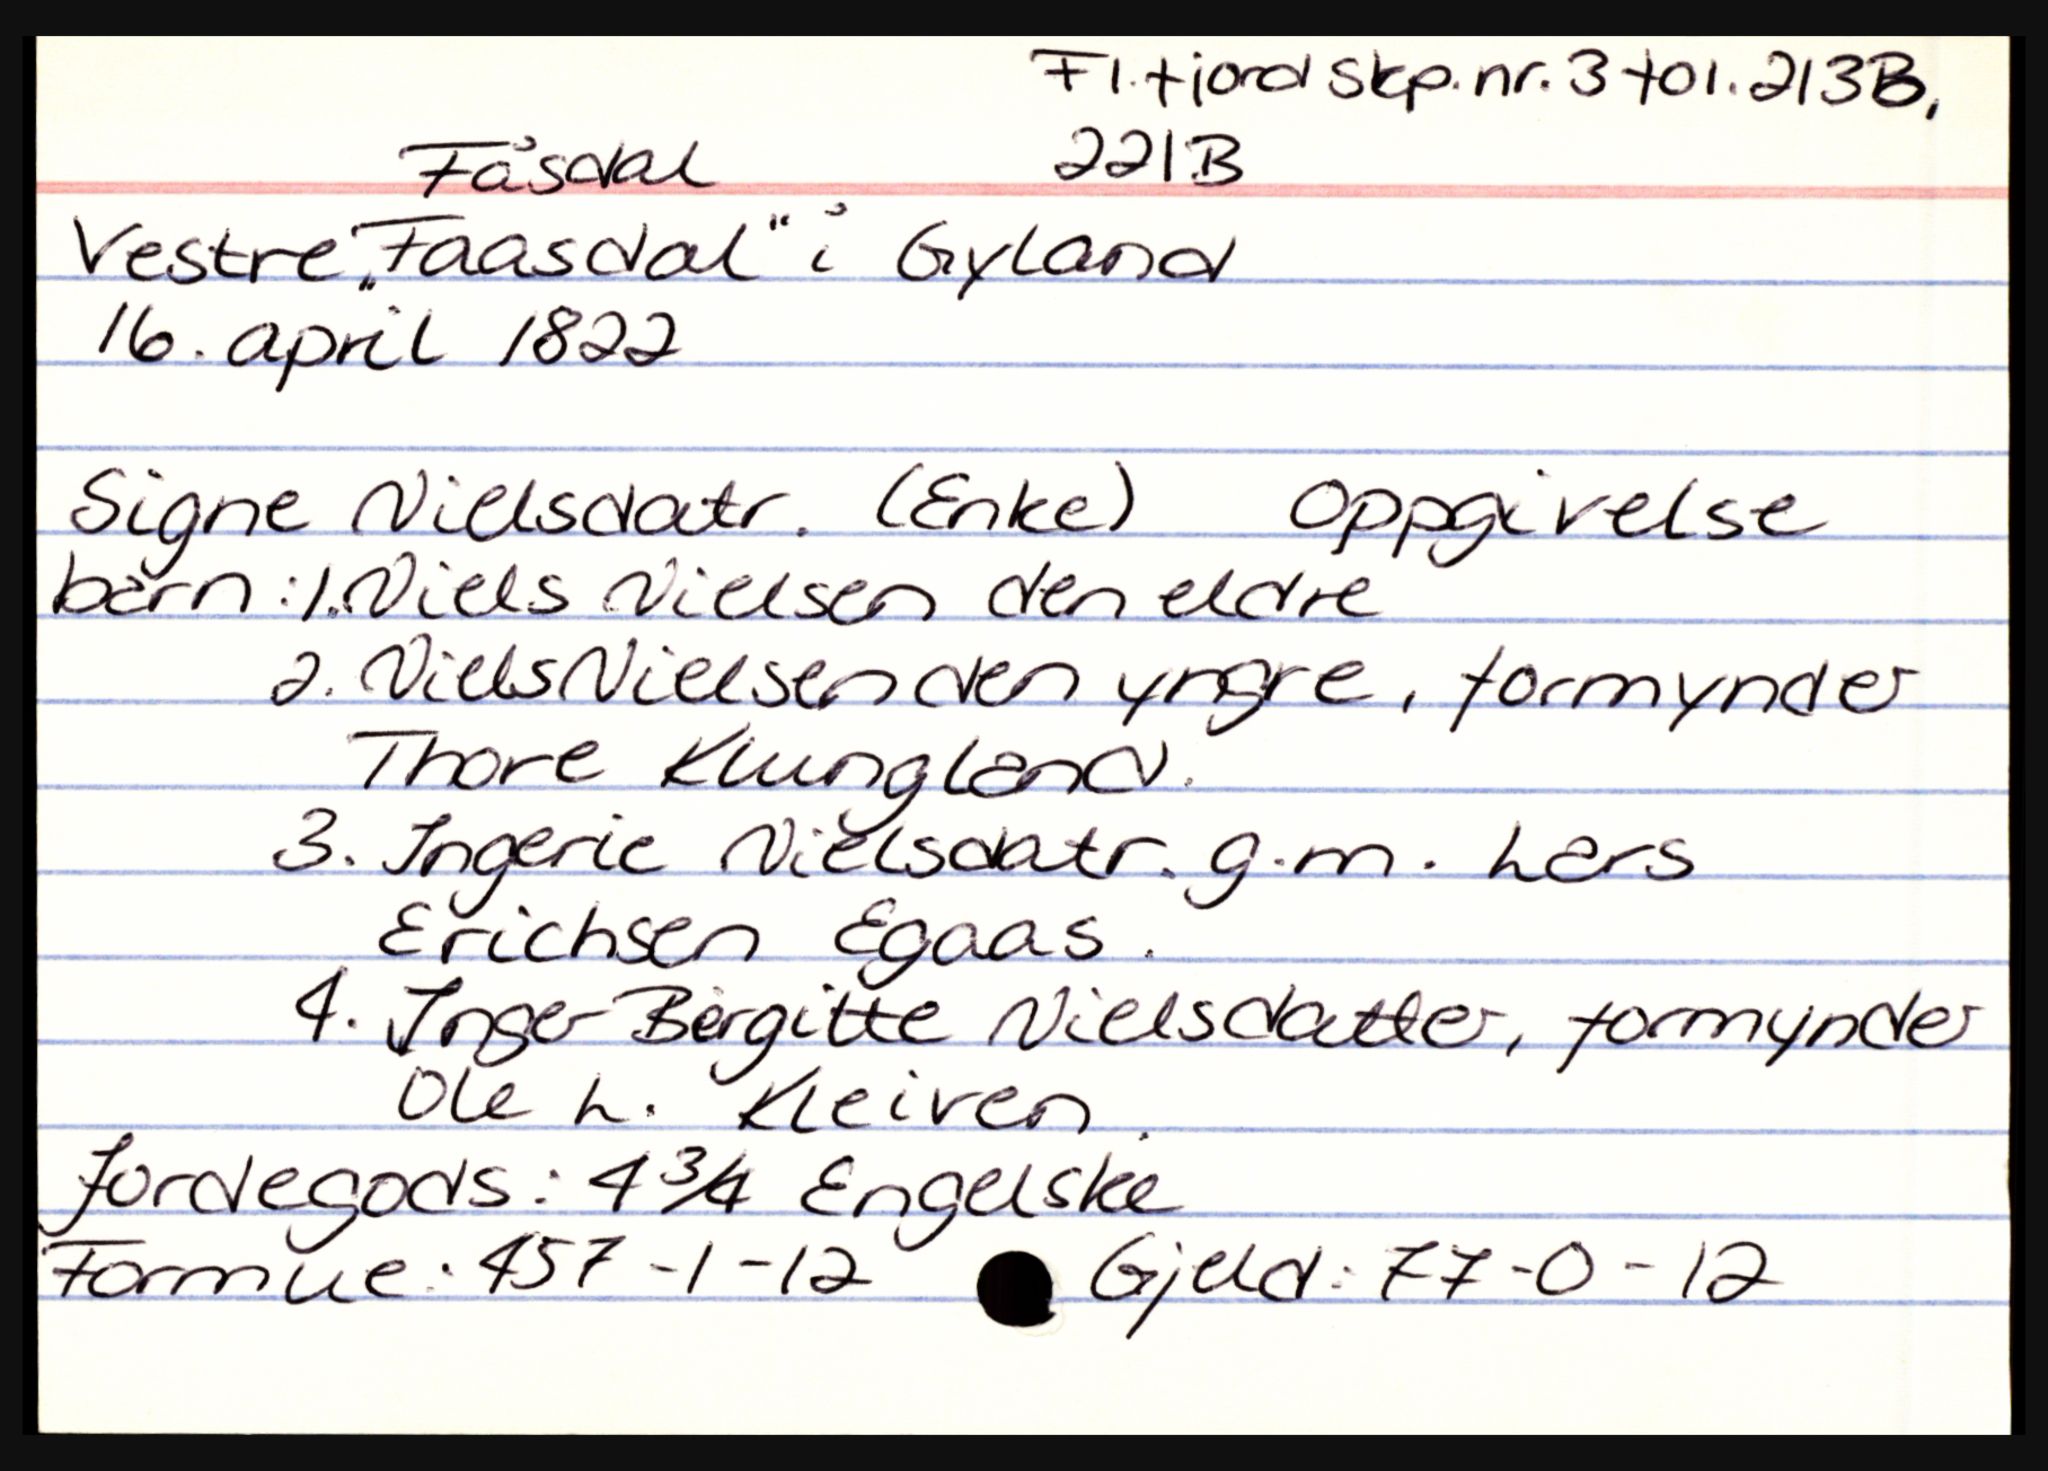 Fl.fjord skp.nr. 3 fol. 213B,
221B
Fåsdal
Vestre „Faasdal“ i Gyland
16. april 1822
Signe Nielsdatr. (Enke) Oppgivelse
barn: 1. Niels Nielsen den eldre
2. Niels Nielsen den yngre, formynder
Thore Klungland.
3. Ingerie Nielsdatr. g.m. Lars
Erichsen Egaas.
4. Inger Birgitte Nielsdatter, formynder
Ole L. Kleiven.
Jordegods: 4 3/4 Engelske
Formue: 457-1-12 Gjeld: 77-0-12